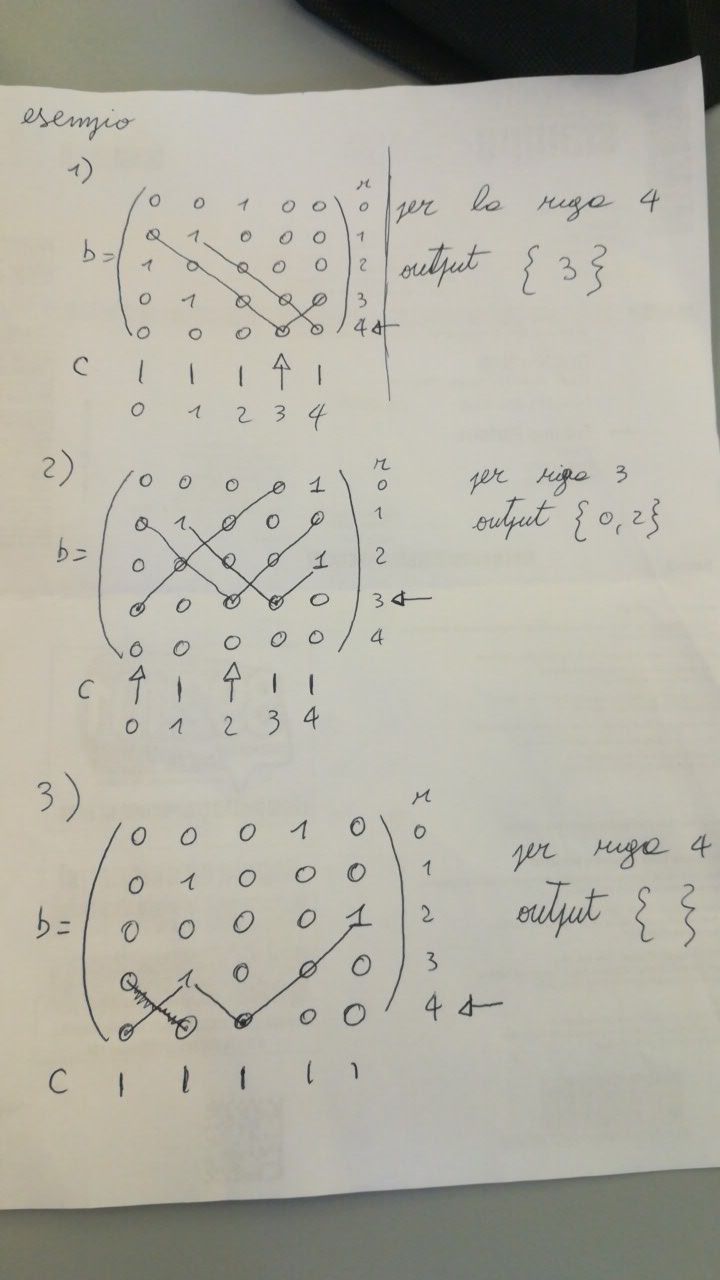 esempio
1)
r
0 0 1 0 0 0 per la riga 4
0 1 0 0 0 1
b= 1 0 0 0 0 2 output { 3 }
0 1 0 0 0 3
0 0 0 0 0 4
C | | | ↑ |
0 1 2 3 4
2)
r
0 0 0 0 1 0 per riga 3
0 1 0 0 0 1 output { 0, 2 }
b= 0 0 0 0 1 2
0 0 0 0 0 3
0 0 0 0 0 4
C ↑ | ↑ | |
0 1 2 3 4
3)
r
0 0 0 1 0 0
0 1 0 0 0 1 per riga 4
b= 0 0 0 0 1 2 output { }
0 1 0 0 3
0 0 0 0 0 4
C | | | | |